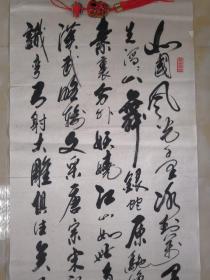 北國风光千里冰封万
失滔滔山舞銀蛇原馳
素裹分外妖嬈江山如此多
漢武略輸文采唐宗宋
識彎弓射大雕俱往矣